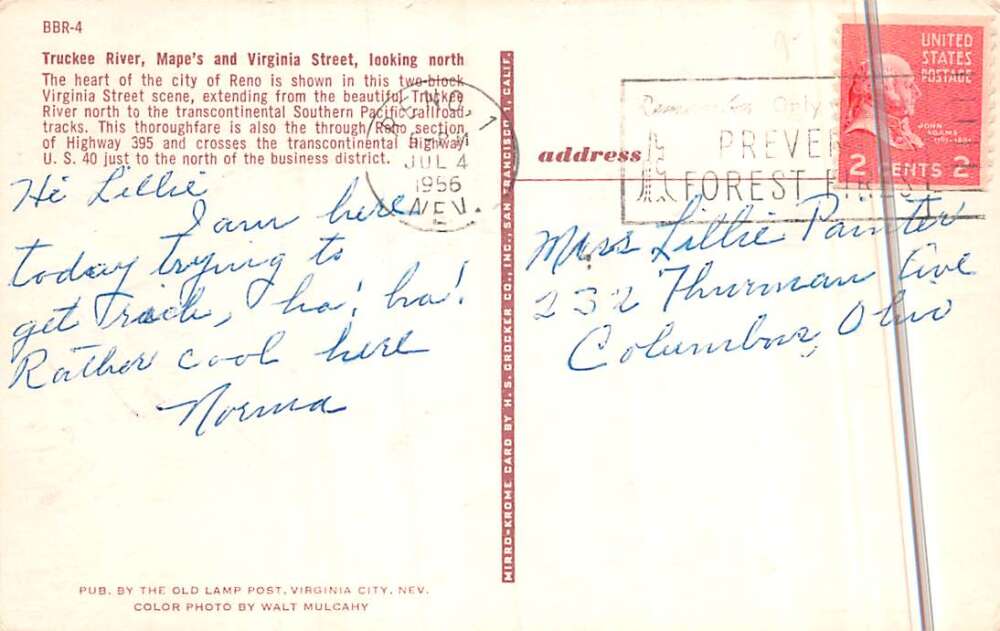 BBR-4
Truckee River, Mape's and Virginia Street, looking north
The heart of the city of Reno is shown in this two-block
Virginia Street scene, extending from the beautiful Truckee
River north to the transcontinental Southern Pacific railroad
tracks. This thoroughfare is also the through Reno section
of Highway 395 and crosses the transcontinental Highway
U. S. 40 just to the north of the business district.
Hi Lillie
I am here
today trying to
get rich, ha! ha!
Rather cool here
Norma
PUB. BY THE OLD LAMP POST, VIRGINIA CITY, NEV.
COLOR PHOTO BY WALT MULCAHY
MIRRO-KROME CARD BY H. S. CROCKER CO., INC., SAN FRANCISCO 1, CALIF.
RENO, 1
PM
JUL 4
1956
NEV.
Only
PREVEN
FOREST FIRES
UNITED
STATES
POSTAGE
JOHN
ADAMS
2 CENTS 2
address
Miss Lillie Painter
232 Thurman Ave
Columbus, Ohio